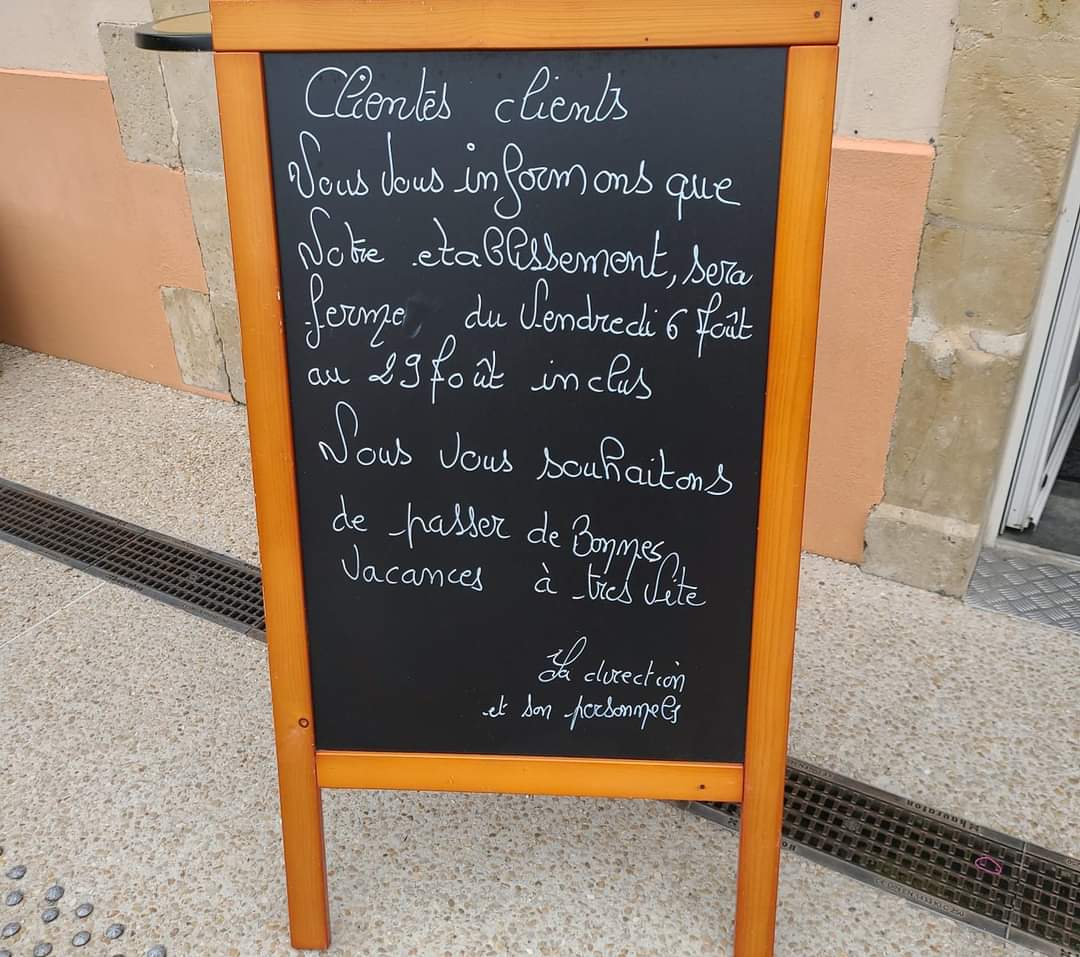 Clientès clients
Nous Vous informons que
Notre etablissement, sera
ferme du Vendredi 6 Août
au 29 Août inclus
Nous Vous souhaitons
de passer de Bonnes
Vacances à tres Vite
La direction
et son personnels